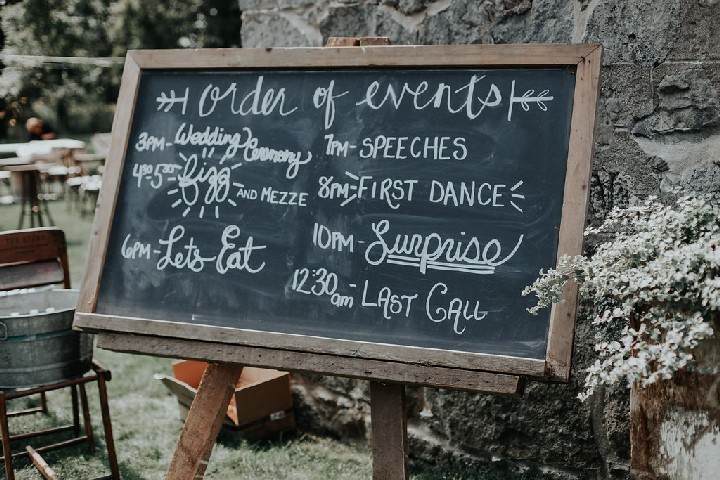 order of events
3PM - Wedding Ceremony
4:30-5:30 Fizz AND MEZZE
6PM - Let's Eat
7PM - SPEECHES
8PM - FIRST DANCE
10PM - Surprise
12:30am - LAST CALL